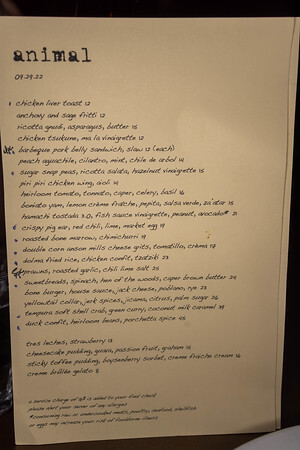 animal
09.29.22
chicken liver toast 12
anchovy and sage fritti 12
ricotta gnudi, asparagus, butter 15
chicken tsukune, ma la vinaigrette 12
barbeque pork belly sandwich, slaw 12 (each)
peach aguachile, cilantro, mint, chile de arbol 14
sugar snap peas, ricotta salata, hazelnut vinaigrette 15
piri piri chicken wing, aioli 14
heirloom tomato, tonnato, caper, celery, basil 16
boniato yam, lemon crème fraîche, pepita, salsa verde, za'atar 15
hamachi tostada 3.0, fish sauce vinaigrette, peanut, avocado* 21
crispy pig ear, red chili, lime, market egg 19
roasted bone marrow, chimichurri 19
double corn anson mills cheese grits, tomatillo, crèma 17
dolma fried rice, chicken confit, tzatziki 23
prawns, roasted garlic, chili lime salt 25
sweetbreads, spinach, hen of the woods, caper brown butter 24
bone burger, house sauce, jack cheese, poblano, rye 23
yellowtail collar, jerk spices, jicama, citrus, palm sugar 26
tempura soft shell crab, green curry, coconut milk caramel 39
duck confit, heirloom beans, porchetta spice 45
tres leches, strawberry 13
cheesecake pudding, guava, passion fruit, graham 15
sticky toffee pudding, boysenberry sorbet, creme fraiche cream 16
creme brûlée gelato 8
a service charge of is added to your final check
please alert your server of any allergies
*consuming raw or undercooked meats, poultry, seafood, shellfish
or eggs may increase your risk of foodborne illness